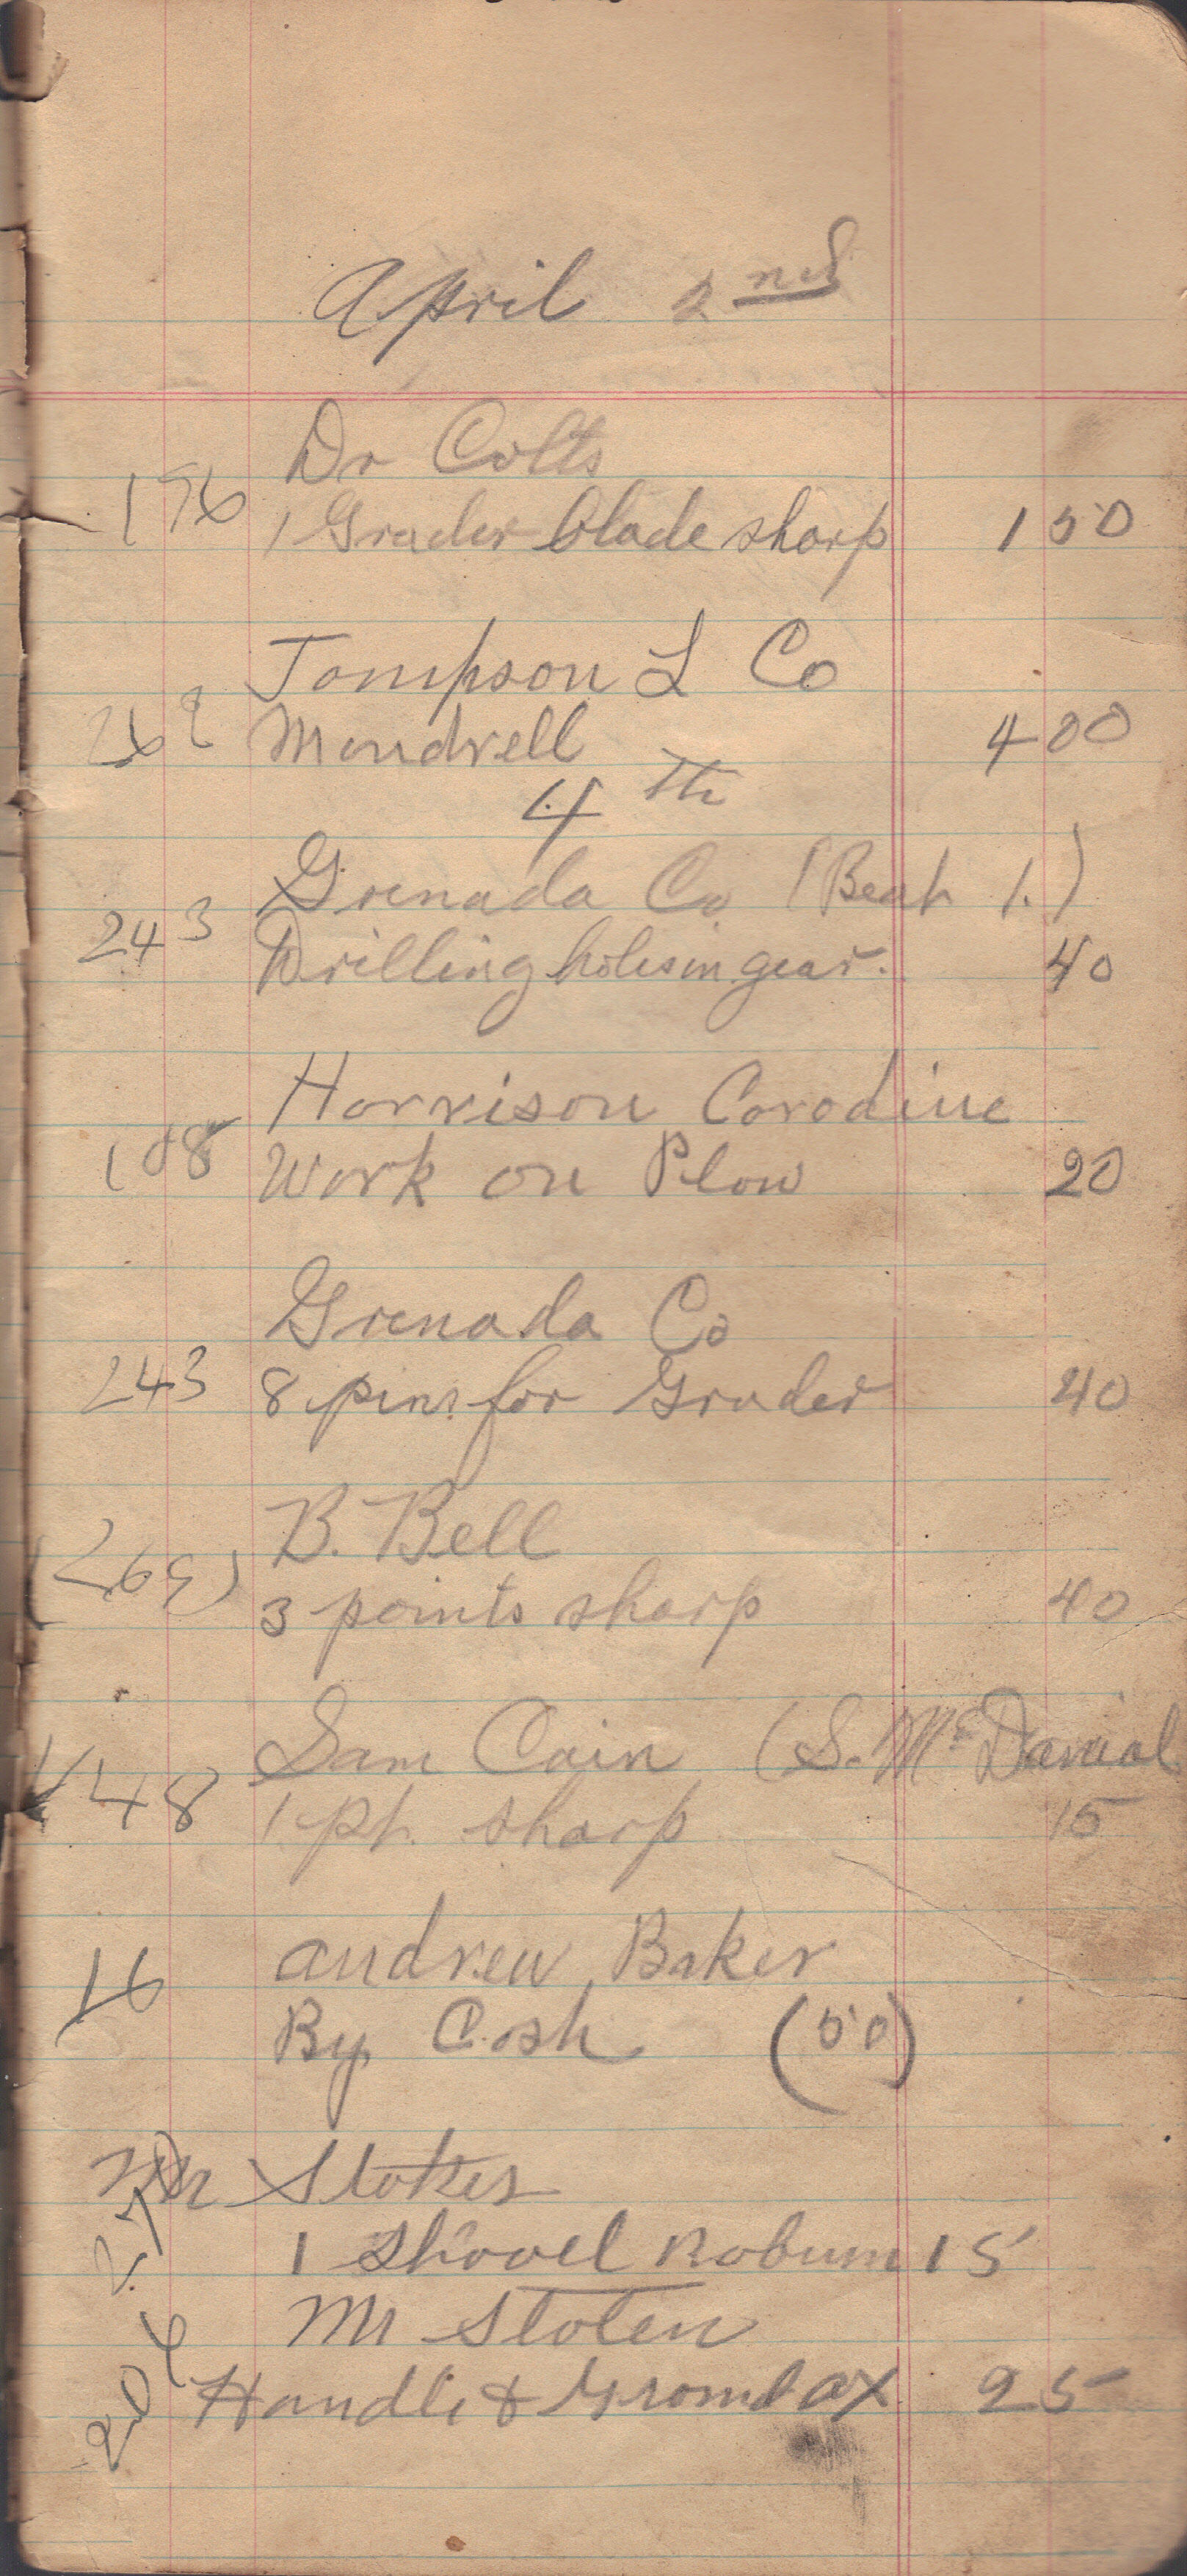 April 2nd
Dr Colts
196 1 Grader blade sharp 1 50
Tompson L Co
262 Mandrell 4 00
4 Th
Grenada Co (Beat 1.)
243 Drilling holes in gear. 40
Harrison Corodine
108 Work on Plow 20
Grenada Co
243 8 pins for Grader 40
B. Bell
(269) 3 points sharp 40
Sam Cain (S. McDanial
148 1 pt. sharp 15
16 Andrew Baker
By Cash (50)
Mr Stokes
27 1 Shovel 15
Mr Stoten
204 Handle & Grond ax 25